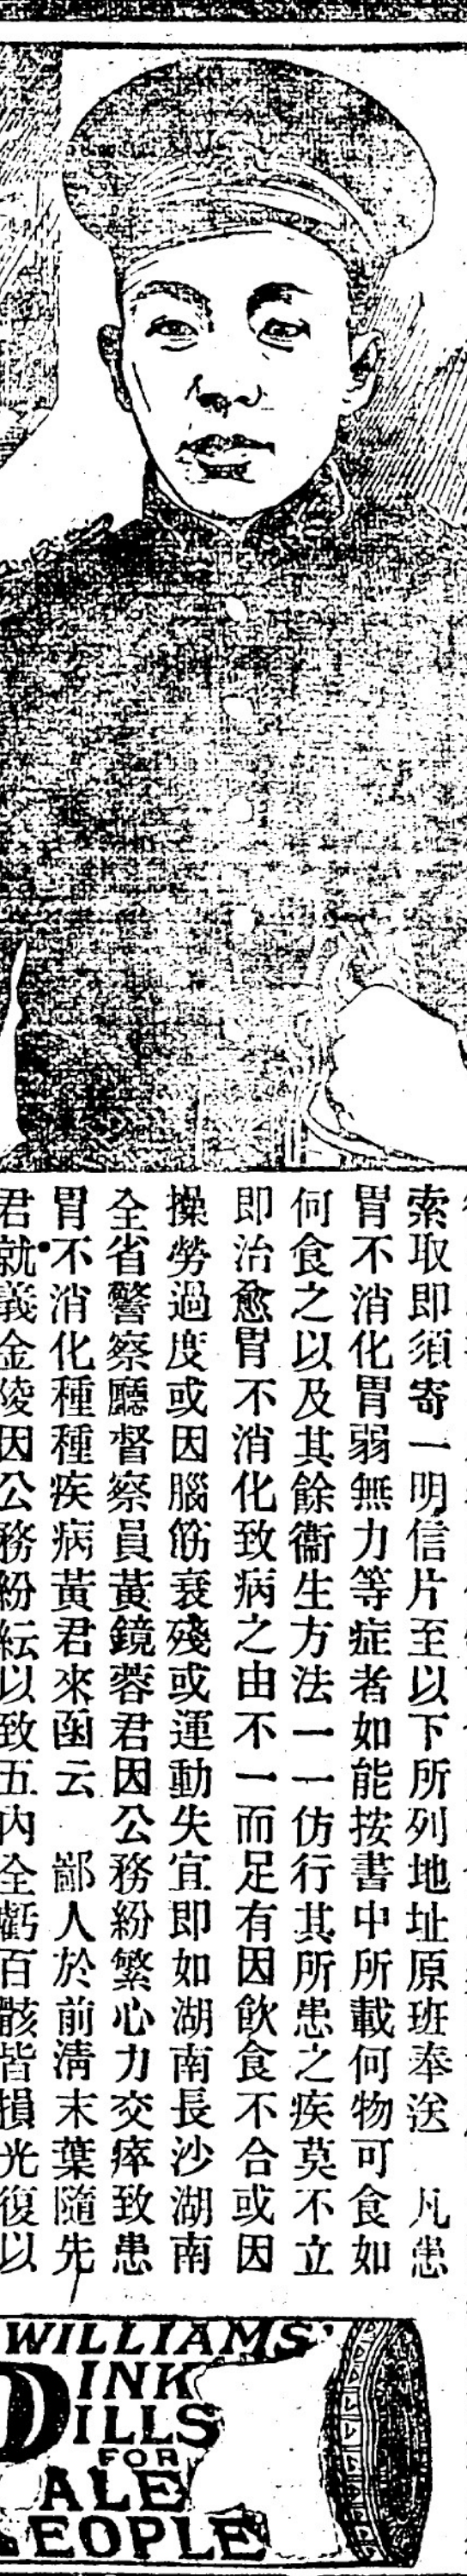 索取即須寄一明信片至以下所列地址原班奉送　凡患
胃不消化胃弱無力等症者如能按書中所載何物可食如
何食之以及其餘衞生方法一一仿行其所患之疾莫不立
即治愈胃不消化致病之由不一而足有因飲食不合或因
操勞過度或因腦筋衰殘或運動失宜即如湖南長沙湖南
全省警察廳督察員黃鏡蓉君因公務紛繁心力交瘁致患
胃不消化種種疾病黃君來函云　鄙人於前清末葉隨先
君就義金陵因公務紛紜以致五內全虧百骸皆損光復以
WILLIAMS'
PINK
PILLS
FOR
ALE
EOPLE